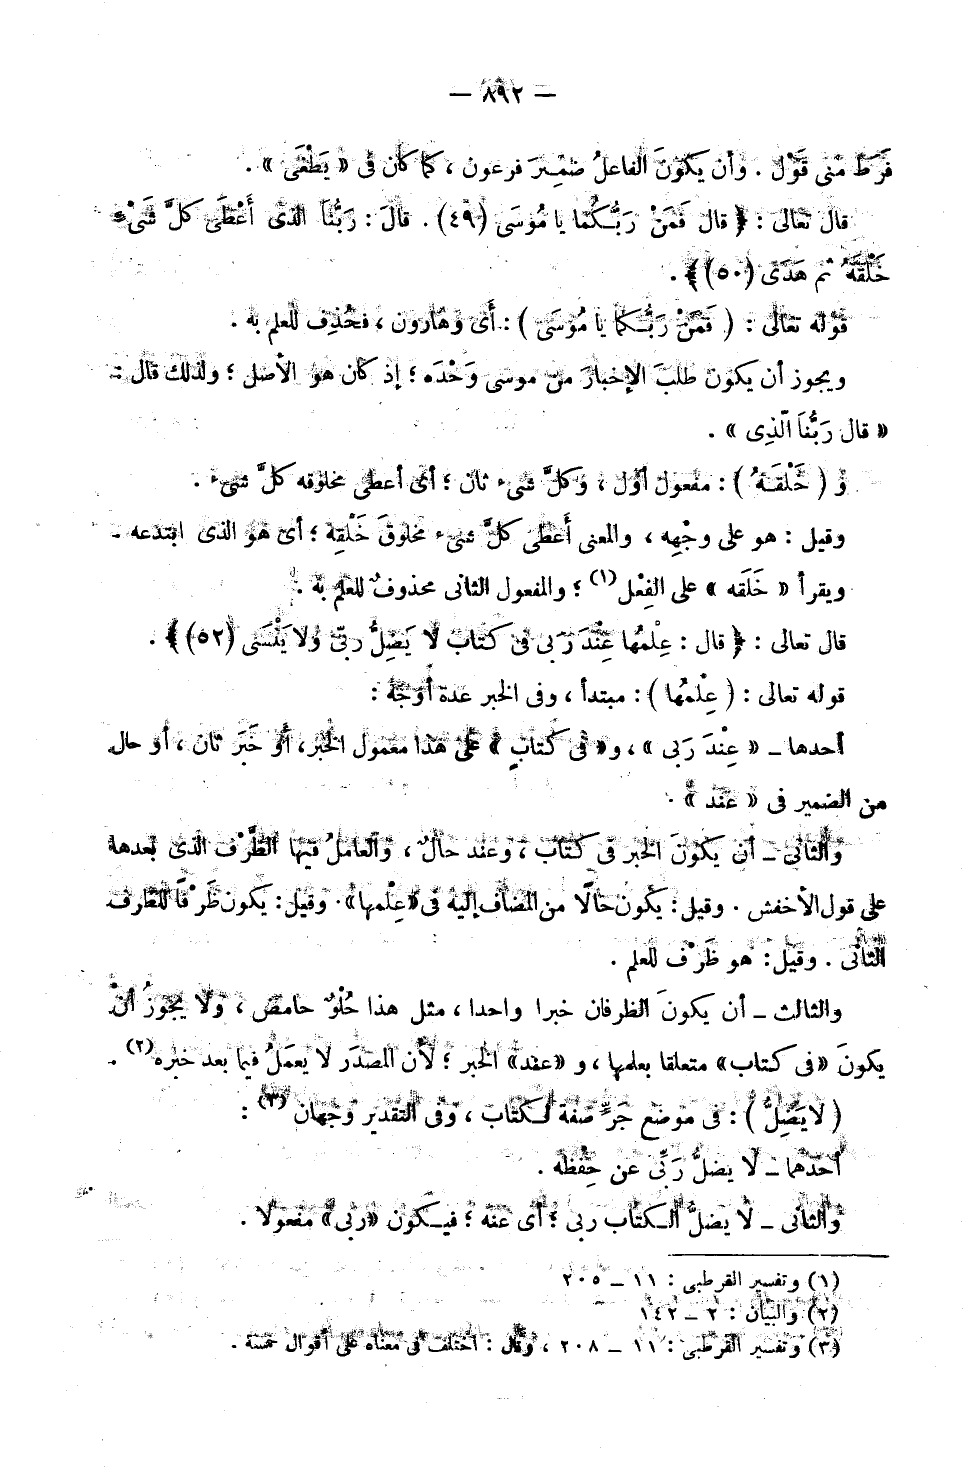 — ٨٩٢ —
فَرَط منى قَوْل . وأن يكونَ الفاعلُ ضَمِيرَ فرعون ، كما كان فى « يَطْغَى » .
قال تعالى : ﴿ قال فَمَنْ رَبُّكُمَا يا مُوسَى (٤٩) . قالَ : رَبُّنَا الذى أَعْطَى كلَّ شَىْءٍ
خَلْقَهُ ثم هَدَى (٥٠) ﴾ .
قوله تعالى : ( فَمَنْ رَبُّكما يا مُوسَى ) : أَى وهارون ، فحُذِف للعلم به .
ويجوز أن يكون طلبَ الإخبارَ من موسى وَحْدَه ؛ إذ كان هو الأصل ؛ ولذلك قال :
« قال رَبُّنَا الّذِى » .
وُ ( خَلْقَهُ ) : مفعول أوّل ، وكلَّ شىء ثان ؛ أى أعطى مخلوقه كلَّ شىء .
وقيل : هو على وجْهِه ، والمعنى أَعْطَى كلَّ شىء مخلوقَ خَلْقِهِ ؛ أى هو الذى ابتدعه .
ويقرأ « خَلَقه » على الفِعْل (١) ؛ والمفعول الثانى محذوفٌ للعلم به .
قال تعالى : ﴿ قال : عِلْمُها عِنْدَ رَبى فى كتاب لا يَضِلُّ ربّى ولا يَنْسَى (٥٢) ﴾ .
قوله تعالى : ( عِلْمُها ) : مبتدأ ، وفى الخبر عدة أوجُه :
أحدها ــ « عِنْدَ رَبى » ، و« فى كتابٍ » على هذا معمول الخبر، أو خَبَر ثان ، أو حال
من الضمير فى « عند » .
والثانى ــ أن يكونَ الخبر فى كتاب ، وعند حالٌ ، والعاملُ فيها الظَّرْف الذى بعدها
على قول الأخفش . وقيل : يكون حالًا من المضاف إليه فى «عِلْمها» . وقيل : يكون ظَرْفًا للظرف
الثانى . وقيل : هو ظَرْف للعلم .
والثالث ــ أن يكونَ الظرفان خبرا واحدا ، مثل هذا حُلْوٌ حامض ، ولا يجوزُ أنْ
يكونَ «فى كتاب» متعلقا بعلمها ، و «عند» الخبر ؛ لأن المصدَر لا يعمَلُ فيما بعد خبره (٢) .
( لا يَضِلُّ ) : فى موضع جَرّ صفة لكتاب ، وفى التقدير وجهان (٣) :
أحدهما ــ لا يضلُّ رَبِّى عن حِفْظه .
والثانى ــ لا يضلُّ الكتاب ربى ؛ أى عنه ؛ فيكون «ربى» مفعولا .
(١) وتفسير القرطبى : ١١ ــ ٢٠٥
(٢) والبيان : ٢ ــ ١٤٢
(٣) وتفسير القرطبى : ١١ ــ ٢٠٨ ، وقال : اختلف فى معناه على أقوال خمسة .